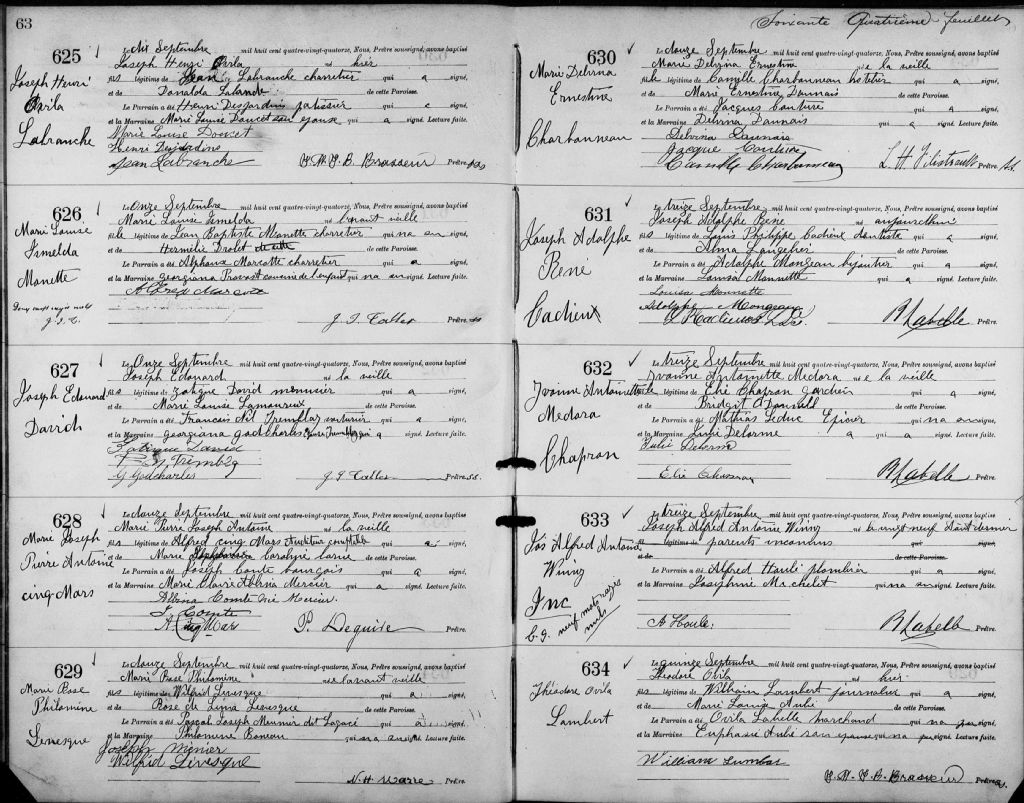 63
625
Joseph Henri
Ovila
Labranche
Le Dix Septembre mil huit cent quatre-vingt-quatorze, Nous, Prêtre soussigné, avons baptisé
Joseph Henri Ovila né hier
fils légitime de Jean Labranche charretier qui a signé,
et de Donalda Lalande de cette Paroisse.
Le Parrain a été Henri Desjardins patissier qui a signé,
et la Marraine Marie Louise Doucet son épouse qui a signé. Lecture faite.
Marie Louise Doucet
Henri Desjardins
Jean Labranche
J. M. J. B. Brasseur Prêtre. s.s.
626
Marie Louise
Ismelda
Monette
J. T.
Le Onze Septembre mil huit cent quatre-vingt-quatorze, Nous, Prêtre soussigné, avons baptisé
Marie Louise Ismelda née l'avant veille
fille légitime de Jean Baptiste Monette charretier qui
et de Herménie Drolet de cette
Le Parrain a été Alphonse Marcotte charretier qui a signé,
et la Marraine Georgiana cousine de l'enfant qui n'a su signé. Lecture faite.
J. T. Prêtre. s.s.
627
Joseph Edouard
David
Le Onze Septembre mil huit cent quatre-vingt-quatorze, Nous, Prêtre soussigné, avons baptisé
Joseph Edouard né la veille
fils légitime de David menuisier qui a signé,
et de Marie Louise Lamoureux de cette Paroisse.
Le Parrain a été François Tremblay voiturier qui a signé,
et la Marraine Georgiana Godcharles qui a signé. Lecture faite.
David
G. Godcharles
J. T. Prêtre. s.s.
628
Marie Joseph
Pierre Antoine
cinq Mars
Le douze Septembre mil huit cent quatre-vingt-quatorze, Nous, Prêtre soussigné, avons baptisé
Marie Pierre Joseph Antoine né la veille
fils légitime de Alfred cinq Mars comptable qui a signé,
et de Marie Caroline de cette Paroisse.
Le Parrain a été Joseph Comte bourgeois qui a signé,
et la Marraine Marie Claire Albina Mercier qui a signé. Lecture faite.
Albina Comte née Mercier
J. Comte
A. Cinq Mars
P. Deguire Prêtre.
629
Marie Rose
Philomine
Levesque
Le douze Septembre mil huit cent quatre-vingt-quatorze, Nous, Prêtre soussigné, avons baptisé
Marie Rose Philomine née l'avant veille
fille légitime de Wilfrid Levesque qui a signé,
et de Rose de Lima Levesque de cette Paroisse.
Le Parrain a été Pascal Joseph Meunier dit Lagacé qui a signé,
et la Marraine Philomène qui n'a su signé. Lecture faite.
Joseph Minier
Wilfrid Levesque
N. H. Prêtre.
Soixante Quatrième feuillet
630
Marie Delvina
Ernestine
Charbonneau
Le douze Septembre mil huit cent quatre-vingt-quatorze, Nous, Prêtre soussigné, avons baptisé
Marie Delvina Ernestine née la veille
fille légitime de Camille Charbonneau hotelier qui a signé,
et de Marie Ernestine Daunais de cette Paroisse.
Le Parrain a été Jacques Couture qui a signé,
et la Marraine Delvina Daunais qui a signé. Lecture faite.
Delvina Daunais
Jacque Couture
Camille Charbonneau
L. H. Filiatrault Prêtre. s.s.
631
Joseph Adolphe
René
Cadieux
Le treize Septembre mil huit cent quatre-vingt-quatorze, Nous, Prêtre soussigné, avons baptisé
Joseph Adolphe René né aujourd'hui
fils légitime de Louis Philippe Cadieux dentiste qui a signé,
et de Alma Langelier de cette Paroisse.
Le Parrain a été Adolphe Mongeau bijoutier qui a signé,
et la Marraine Louisa Monnette qui a signé. Lecture faite.
Louisa Monnette
Adolphe Mongeau
R. Labelle Prêtre.
632
Yvonne Antoinette
Medora
Chapron
Le treize Septembre mil huit cent quatre-vingt-quatorze, Nous, Prêtre soussigné, avons baptisé
Yvonne Antoinette Medora née la veille
fille légitime de Elie Chapron qui a signé,
et de Bridget O'Donnell de cette Paroisse.
Le Parrain a été Mathias Leduc Epicier qui n'a su signé,
et la Marraine Julie Delorme qui a signé. Lecture faite.
Julie Delorme
Elie Chapron
R. Labelle Prêtre.
633
Jos Alfred Antoine
Winny
Inc
Le treize Septembre mil huit cent quatre-vingt-quatorze, Nous, Prêtre soussigné, avons baptisé
Joseph Alfred Antoine Winny né le vingt neuf Août dernier
fils légitime de parents inconnus qui signé,
et de de cette Paroisse.
Le Parrain a été Alfred Houle plombier qui a signé,
et la Marraine Josephine qui n'a su signé. Lecture faite.
neuf mots rayés
nuls
A Houle
R. Labelle Prêtre.
634
Théodore Ovila
Lambert
Le quinze Septembre mil huit cent quatre-vingt-quatorze, Nous, Prêtre soussigné, avons baptisé
Théodore Ovila né hier
fils légitime de William Lambert journalier qui a signé,
et de Marie Louise Aubé de cette Paroisse.
Le Parrain a été Ovila Labelle marchand qui n'a pu signé,
et la Marraine Euphasie Aubé son épouse qui n'a pu signé. Lecture faite.
William Lambert
J. M. J. B. Brasseur Prêtre. s.s.